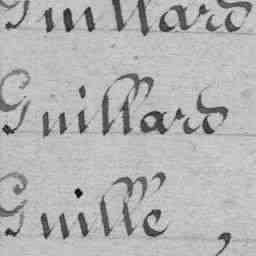 Guillard
Guillard
Guille ,